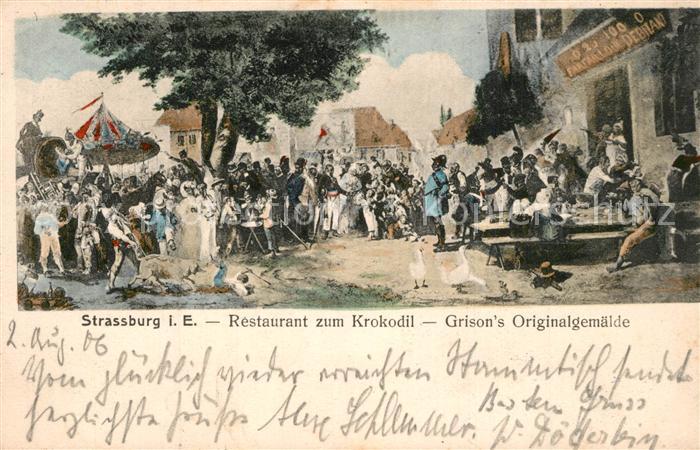 Strassburg i. E. — Restaurant zum Krokodil — Grison's Originalgemälde
2. Aug. 06
Vom glücklich wieder erreichten Stammtisch sendet
herzlichste Grüße Alex Schlemmer.
Besten Gruss